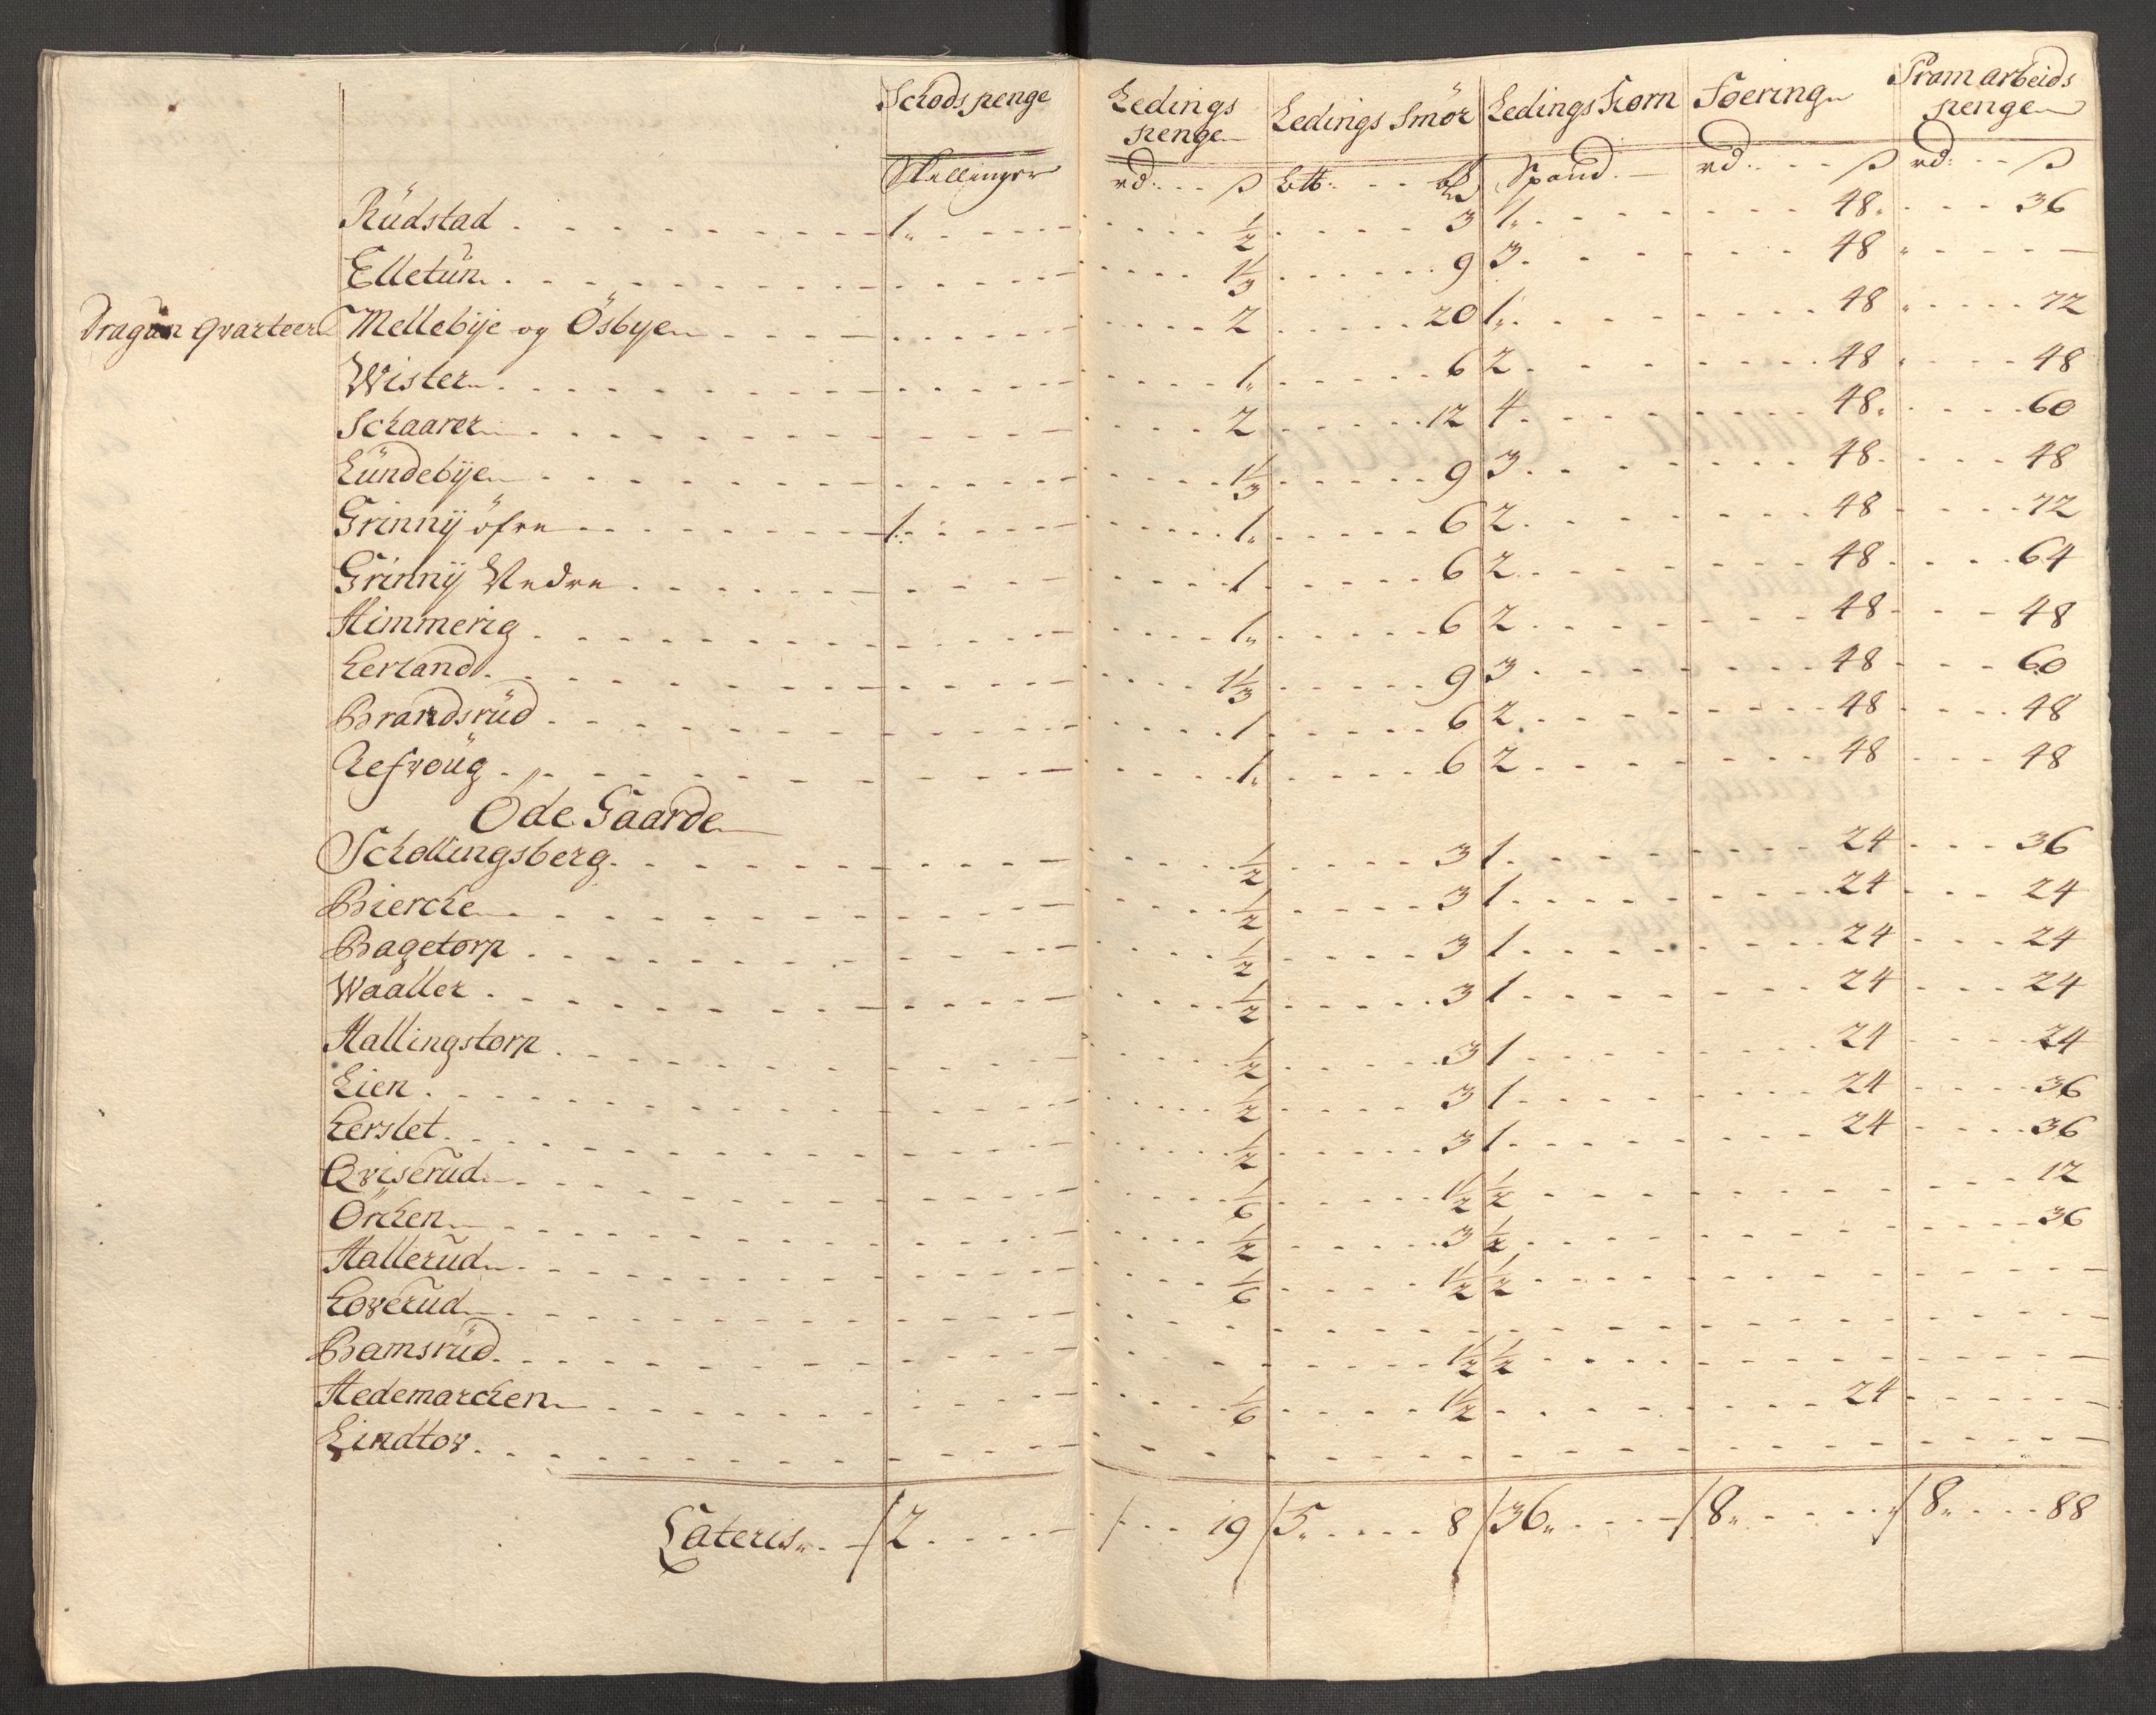 Schods penge Ledings penge Ledings Smör Ledings Korn Foering Pram arbeids penge
Skellinger rd: ß Ltt: Spand. rd: ß rd: ß
Rüdstad 1 ½ 3 1 48 36
Elletün 1⅓ 9 3 48
Dragün qvarteer Mellebÿe og Ösbye 2 20 1 48 72
Wister 1 6 2 48 48
Schaarer 2 12 4 48 60
Lündebÿe 1⅓ 9 3 48 48
Grinnÿ öfre 1 1 6 2 48 72
Grinnÿ Nedre 1 6 2 48 64
Himmerig 1 6 2 48 48
Kerland 1⅓ 9 3 48 60
Brandsrüd 1 6 2 48 48
Refvoüg 1 6 2 48 48
Öde Gaarde
Schollingsberg ½ 3 1 24 36
Bierche ½ 3 1 24 24
Bagetorp ½ 3 1 24 24
Waaller ½ 3 1 24 24
Hallingstorp ½ 3 1 24 24
Lien ½ 3 1 24 36
Kerslet ½ 3 1 24 36
Qviserud ⅙ 1½ ½ 12
Örchen ½ 3 ½ 36
Hallerud ⅙ 1½ ½
Koverud
Bamsrüd 1½ ½
Hedemarchen ⅙ 1½ 24
Lindtov
Lateris 2 19 5 8 36 8 8 88